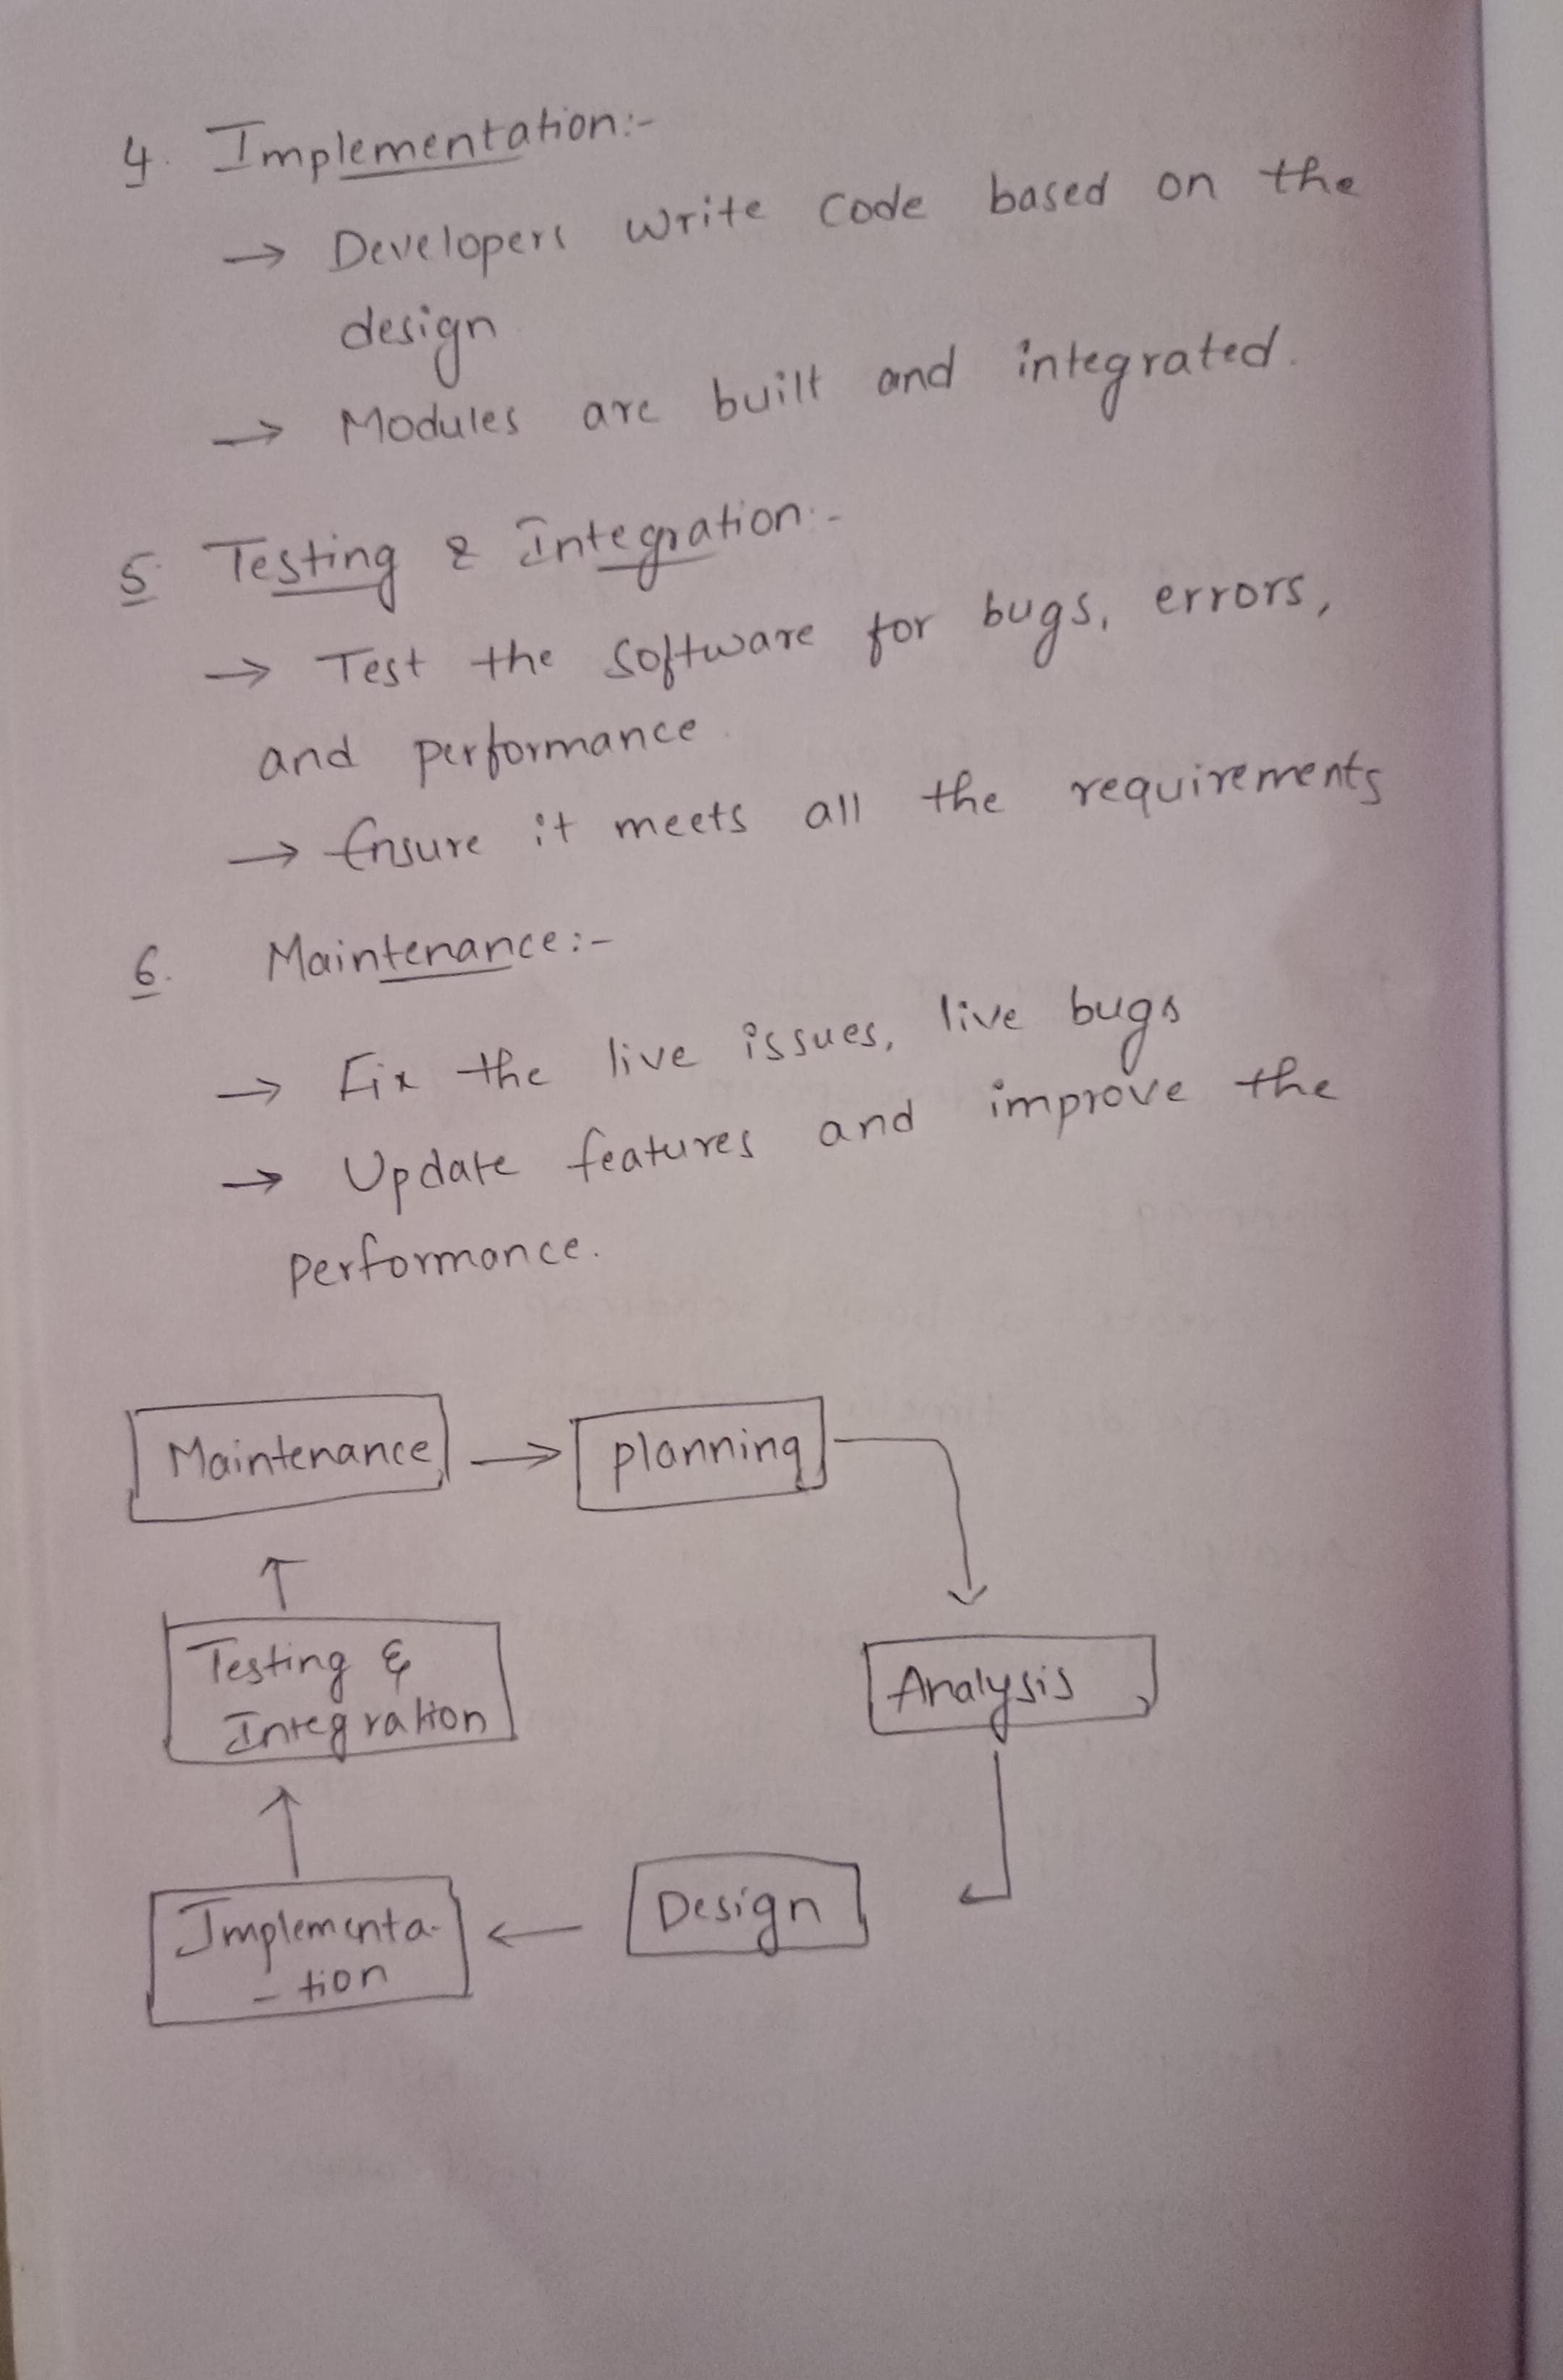 4. Implementation:-
→ Developers write code based on the
design
→ Modules are built and integrated.
5. Testing & Integration:-
→ Test the software for bugs, errors,
and performance.
→ Ensure it meets all the requirements
6. Maintenance:-
→ Fix the live issues, live bugs
→ Update features and improve the
performance.
Maintenance → planning
Testing &
Integration
Analysis
Design
Implementa-
- tion